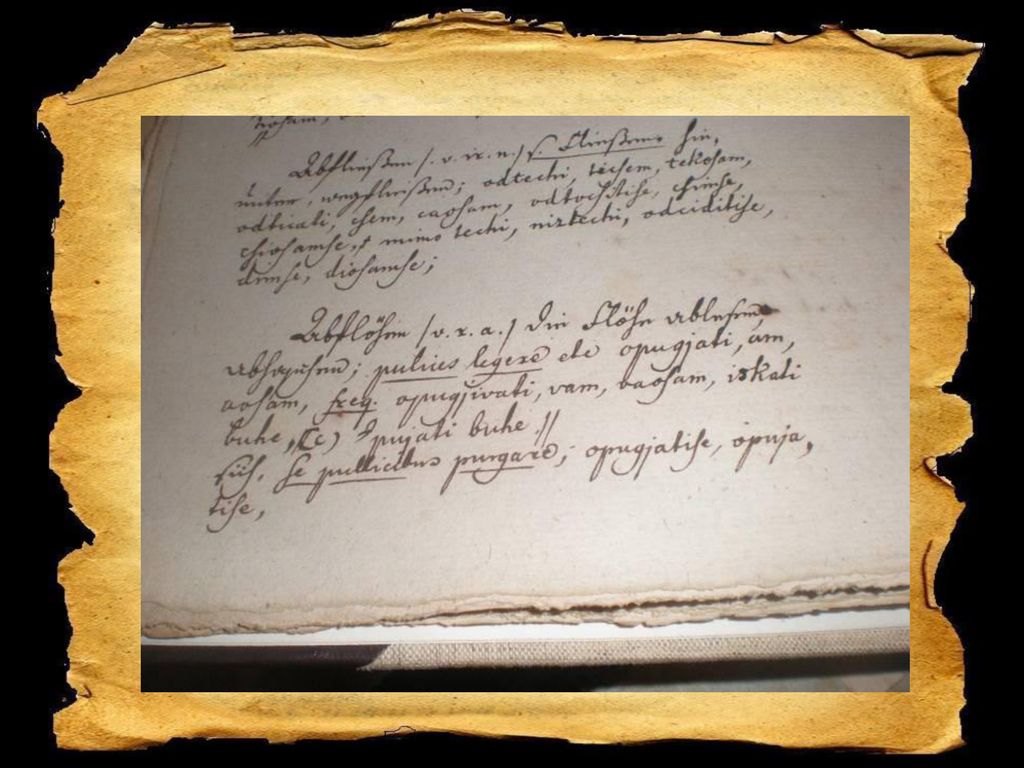 Abfließen /. v. ir. n./ s. Fließen. hin,
wegfließen; odtechi, tecsem, tekosam,
odticati, csem, caosam, odtocsitise, csimse,
csiosamse, mimo techi, niztechi, odciditise,
dimse, diosamse;
Abflöhen /v. r. a./ die Flöhe ablesen,
absuchen; pulices legere etc opugjati, am,
aosam, freq. opugjivati, vam, vaosam, iskati
buhe, (c) pujati buhe.//
sich, se pullicibus purgare; opugjatise, opuja,
tise,